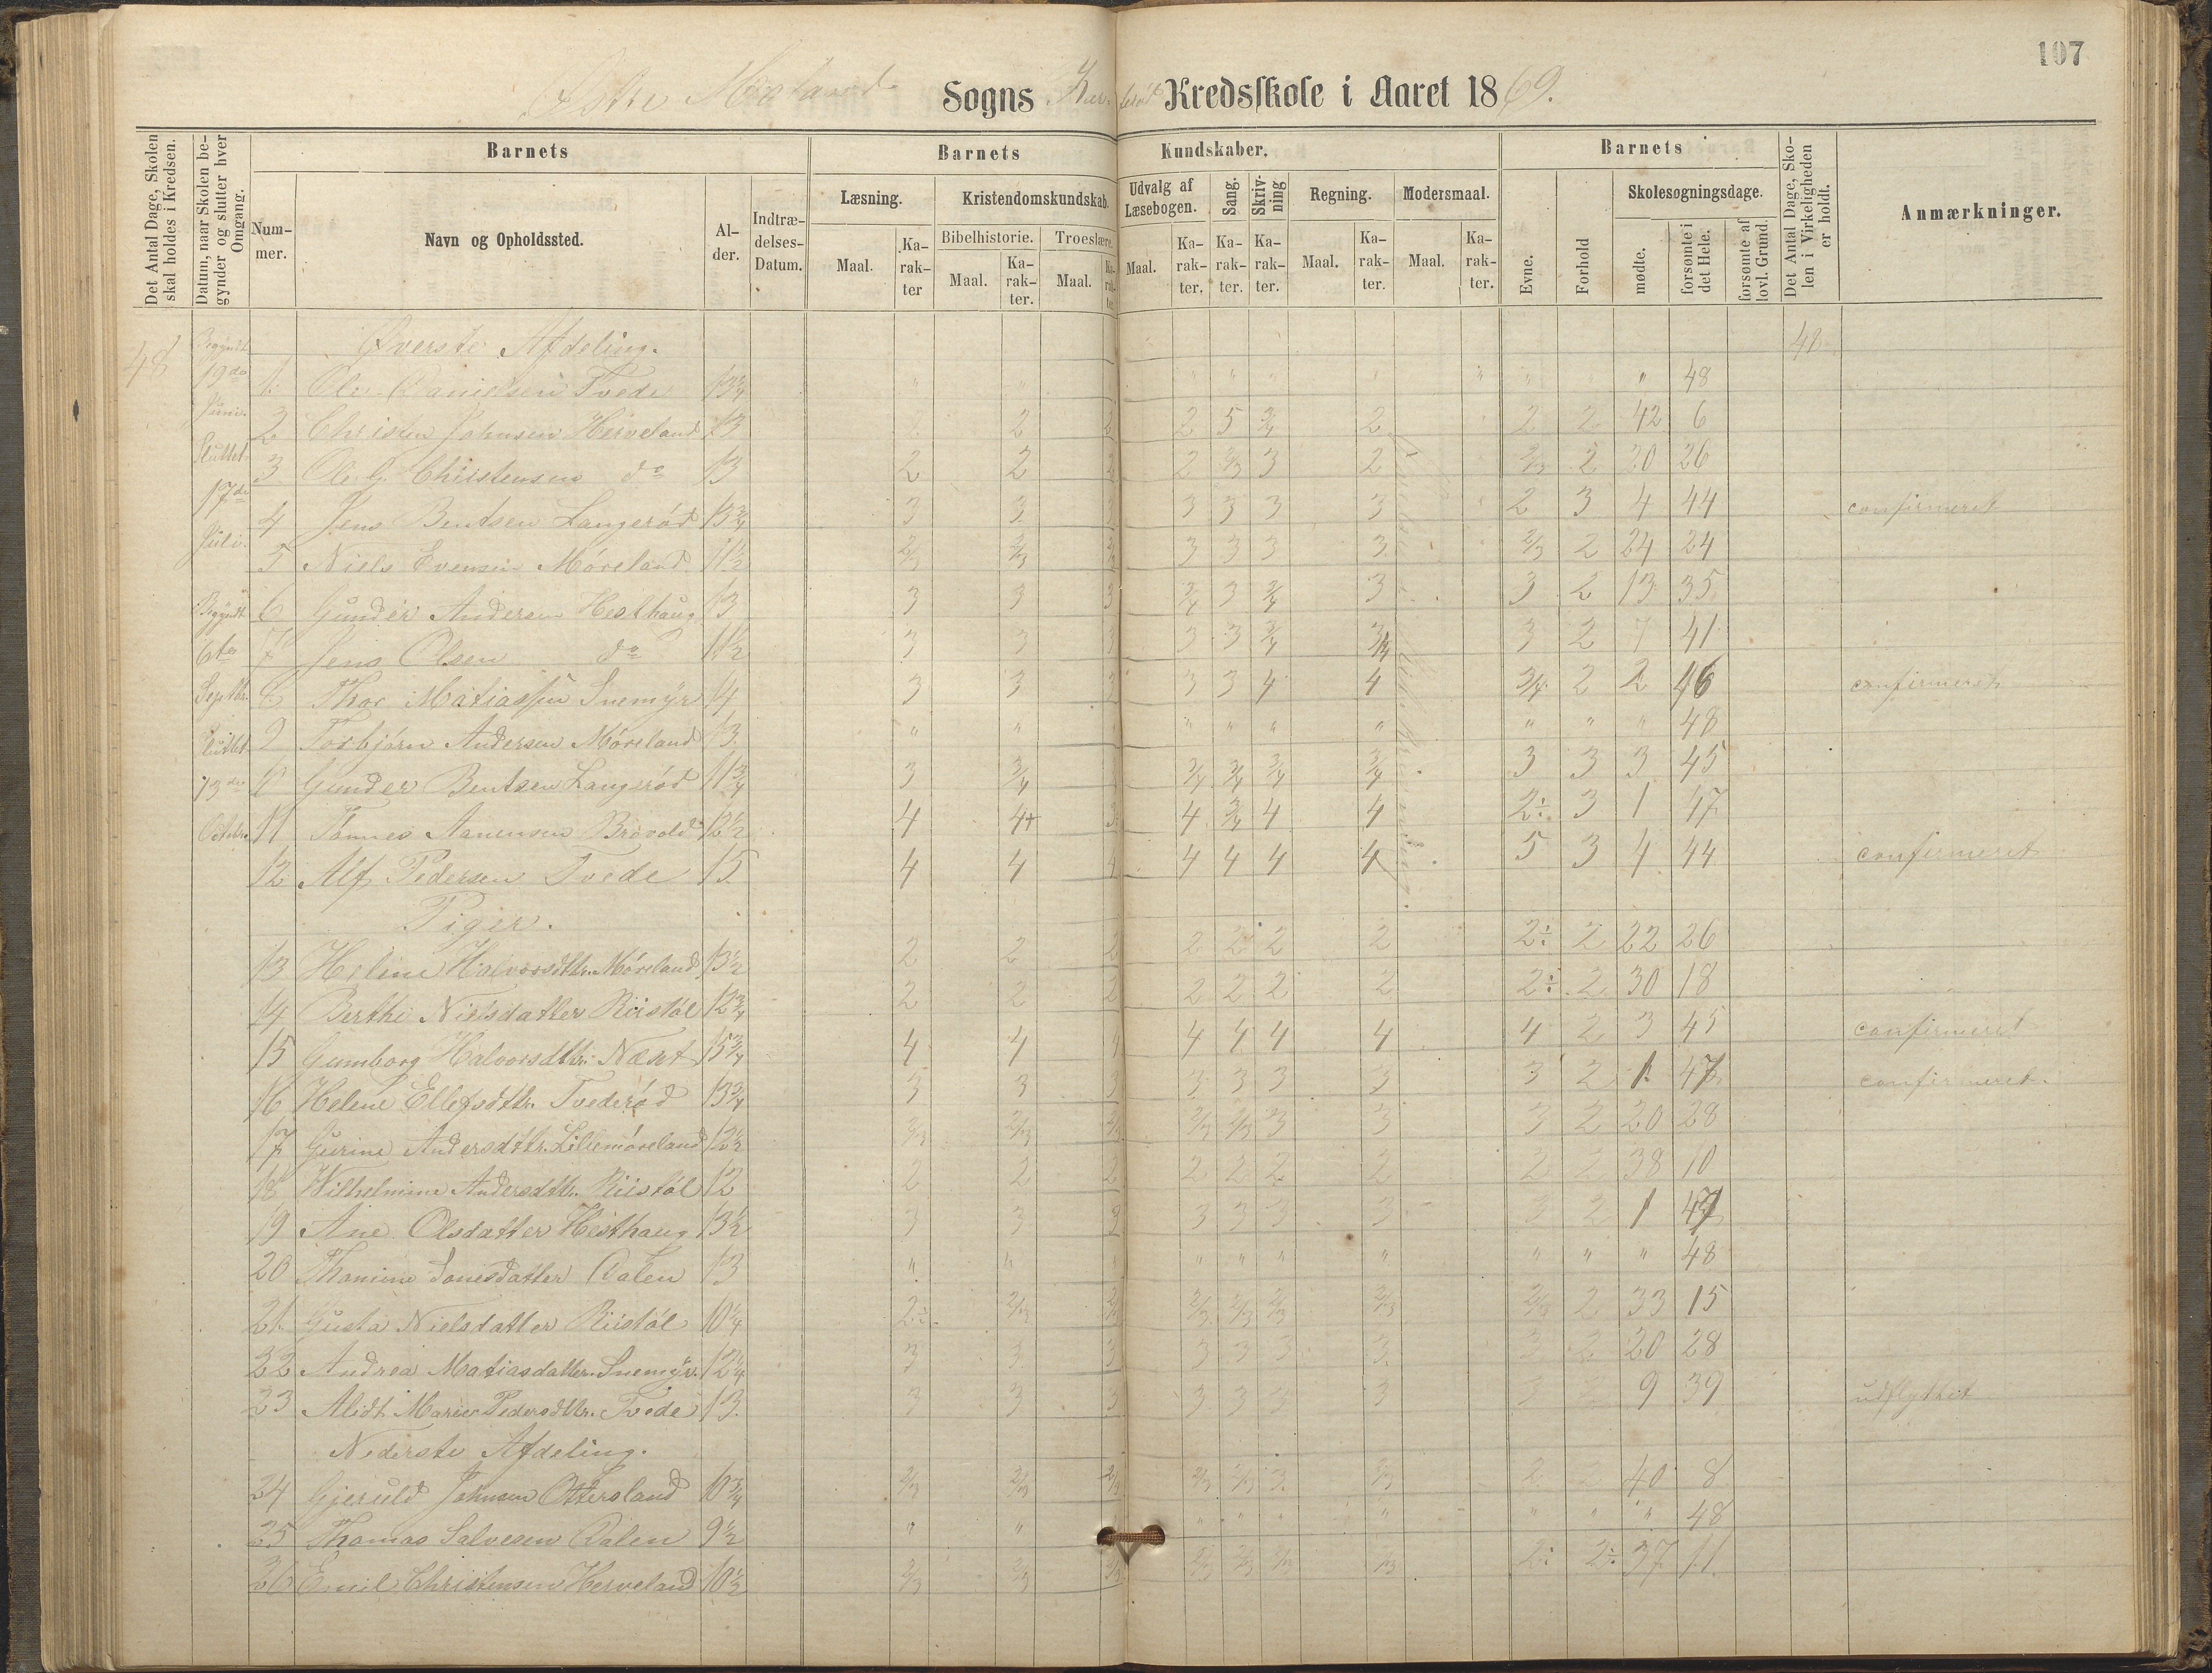 107
Østre Moland Sogns Kredsskole i Aaret 1869.
Det Antal Dage, Skolen skal holdes i Kredsen.
Datum, naar Skolen begynder og slutter hver Omgang.
Barnets
Nummer.
Navn og Opholdssted.
Alder.
Indtrædelses-Datum.
Barnets Kundskaber.
Læsning.
Maal. Karakter
Kristendomskundskab.
Bibelhistorie. Troeslære.
Maal. Karakter. Maal. Karakter
Udvalg af Læsebogen.
Maal. Karakter.
Sang. Karakter.
Skrivning Karakter.
Regning.
Maal. Karakter.
Modersmaal.
Maal. Karakter.
Barnets
Evne. Forhold
Skolesøgningsdage.
mødte. forsømte i det Hele. forsømte af lovl. Grund.
Det Antal Dage, Skolen i Virkeligheden er holdt.
Anmærkninger.
48 Begyndt 19de Juni. Sluttet 17de Juli.
Begyndt 6te Septbr. Sluttet 13de Octobr.
Øverste Afdeling. 48
1. Ole Danielsen Tvede 13 3/4 " " " " " " " " " 48
2 Christen Johnsen Herveland 13 2 2 2 5 3/4 2 2 2 42 6
3 Ole G. Christensen do 13 2 2 2 2 2/3 3 2 2/3 2 20 26
4 Jens Bentsen Langerød 13 3/4 3 3 3 3 3 3 3 2 3 4 44 confirmeret
5 Niels Evensen Móreland 11 1/2 2/3 2/3 2/3 3 3 3 3 2/3 2 24 24
6 Gunder Andersen Hesthaug 13 3 3 3 3/4 3 3/4 3 3 2 13 35
7 Jens Olsen do 11 1/2 3 3 3 3 3 3/4 3/4 3 2 7 41
8 Thor Matiassen Snemyr 14 3 3 3 3 3 4 4 3/4 2 2 46 confirmeret
9 Torbjørn Andersen Móreland 13 " " " " " " " " " 48
10 Gunder Bentsen Langerød 11 3/4 3 3/4 3/4 3/4 3/4 3/4 3 3 3 45
11 Tønnes Aanensen Brovold 12 1/2 4 4+ 3 4 3/4 4 4 2÷ 3 1 47
12 Alf Pedersen Tvede 15 4 4 4 4 4 4 4 5 3 4 44 confirmeret
Piger.
13 Heline Halvorsdttr. Móreland 13 1/2 2 2 2 2 2 2 2 2÷ 2 22 26
14 Berthe Nielsdatter Riistøl 12 3/4 2 2 2 2 2 2 2 2÷ 2 30 18
15 Gumborg Halvorsdttr. Næset 15 3/4 4 4 4 4 4 4 4 4 2 3 45 confirmeret
16 Helene Ellefsdttr. Tvederød 13 3/4 3 3 3 3 3 3 3 3 2 1 47 confirmeret
17 Gurine Andersdttr. Lillemóreland 12 1/2 2/3 2/3 2/3 2/3 2/3 3 3 3 2 20 28
18 Wilhelmine Andersdttr. Riistøl 12 2 2 2 2 2 2 2 2 2 38 10
19 Ane Olsdatter Hesthaug 13 1/2 3 3 3 3 3 3 3 3 2 1 47
20 Thomine Jonesdatter Dalen 13 " " " " " " " " " " 48
21 Gusta Nielsdatter Riistøl 10 1/4 2÷ 2/3 2/3 2/3 2/3 2/3 2/3 2/3 2 33 15
22 Andrea Matiasdatter Snemyr 12 1/4 3 3 3 3 3 3 3 3 2 20 28
23 Alidt Marie Pedersdttr. Tvede 13 3 3 3 3 3 3 3 3 2 9 39 udflyttet
Nederste Afdeling.
24 Gjeruld Johnsen Ottersland 10 3/4 2/3 2/3 2/3 2/3 2/3 3 2/3 2 2 40 8
25 Thomas Salvesen Dalen 9 1/2 " " " " " " " " " 48
26 Emil Christensen Herveland 10 1/2 2/3 2/3 2/3 2/3 2/3 2/3 2/3 2÷ 2÷ 37 11